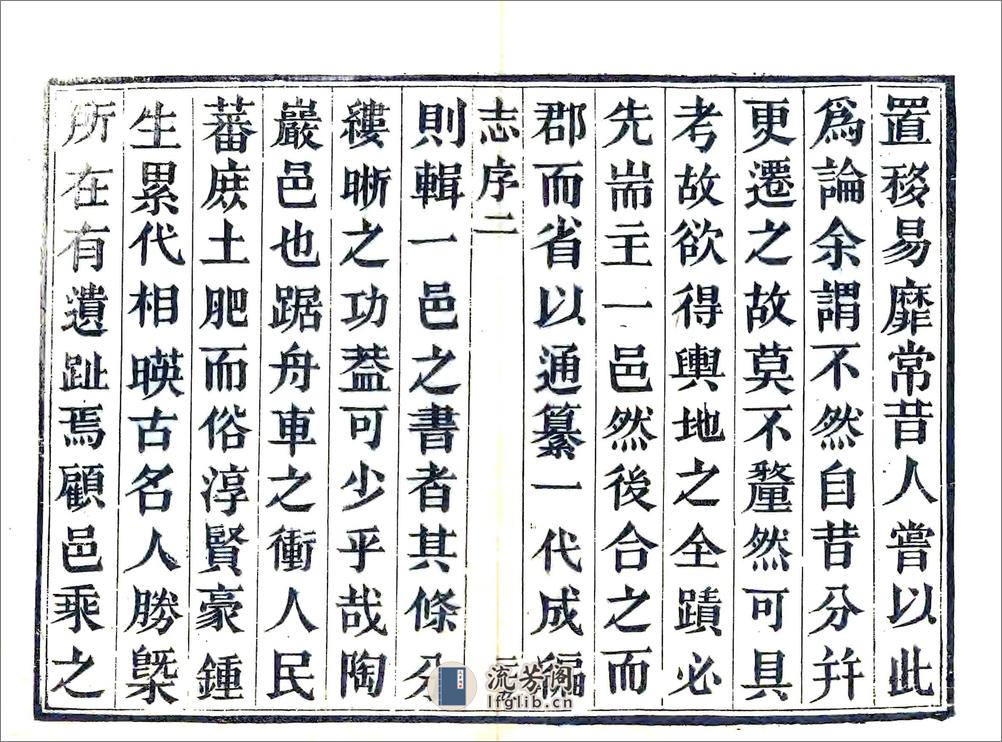 置移易靡常昔人嘗以此
爲論余謂不然自昔分并
更遷之故莫不釐然可具
考故欲得輿地之全蹟必
先耑主一邑然後合之而
郡而省以通纂一代成編
志序二
則輯一邑之書者其條分
縷晰之功葢可少乎哉陶
巖邑也踞舟車之衝人民
蕃庶土肥而俗淳賢豪鍾
生累代相暎古名人勝槩
所在有遺趾焉顧邑乘之
流芳阁
lfglib.cn